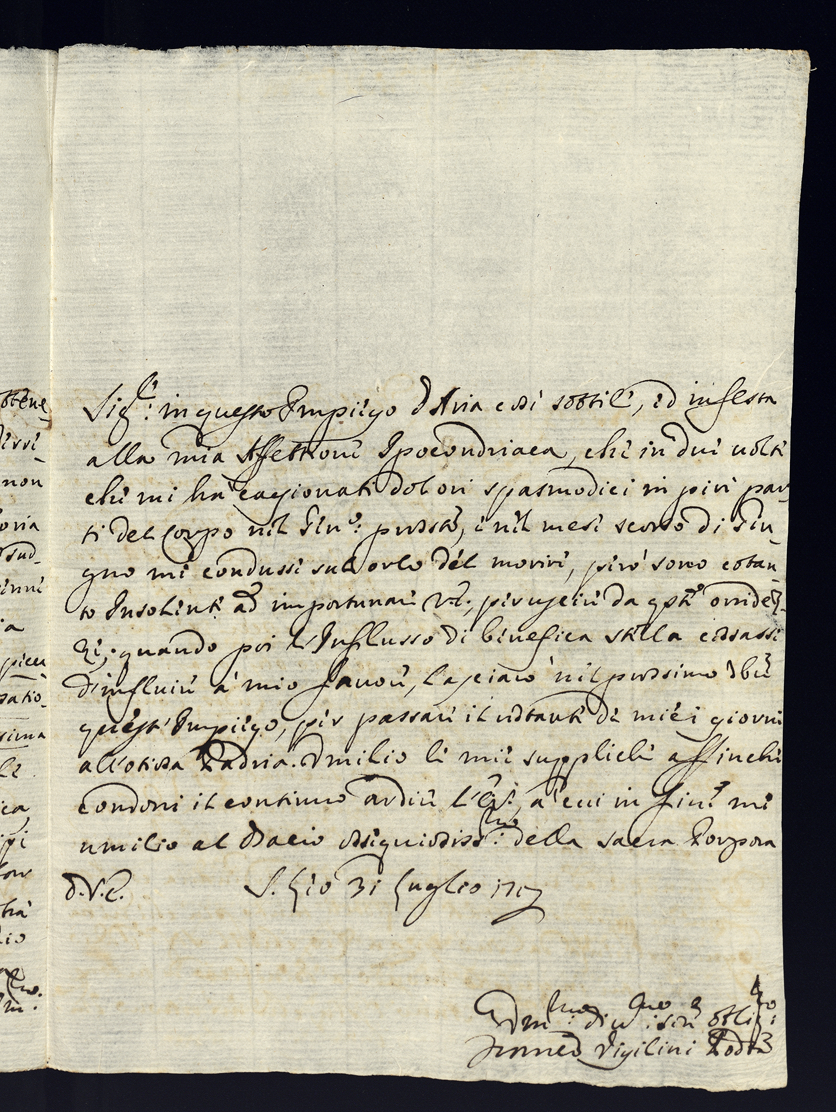 ottene_
non
oria
ia
sima
ca
lio
Sig.ri: in questo Impiego d'Aria così sottile, ed infesta
alla mia Affettione Ipocondriaca, che in due uolte
che mi hà cagionati dolori spasmodici in più par_
ti del Corpo nel pnte:, e nel mese scorso di Giu_
gno mi condusse sul orlo del morire, però sono cotan_
to Insolente ad importunare V.S., per uscire da qsto orride_
ze; quando poi l'Influsso di benefica stella cessasse
d'influire à mio fauore, lasciarò nel prossimo 8bre
quest'Impiego, per passare il restante de miei giorni
all'otiosa Padria. Umilio le mie suppliche affinche
condoni il continuo ardire L'E.S., à cui in fine mi
umilio al Bacio ossequiosiss.mo: della Sacra Porpora
D.V.E. S. Gio 31 Luglio 1717
Um.mo: diu.mo: seru obligo:
Vigilini Podtà